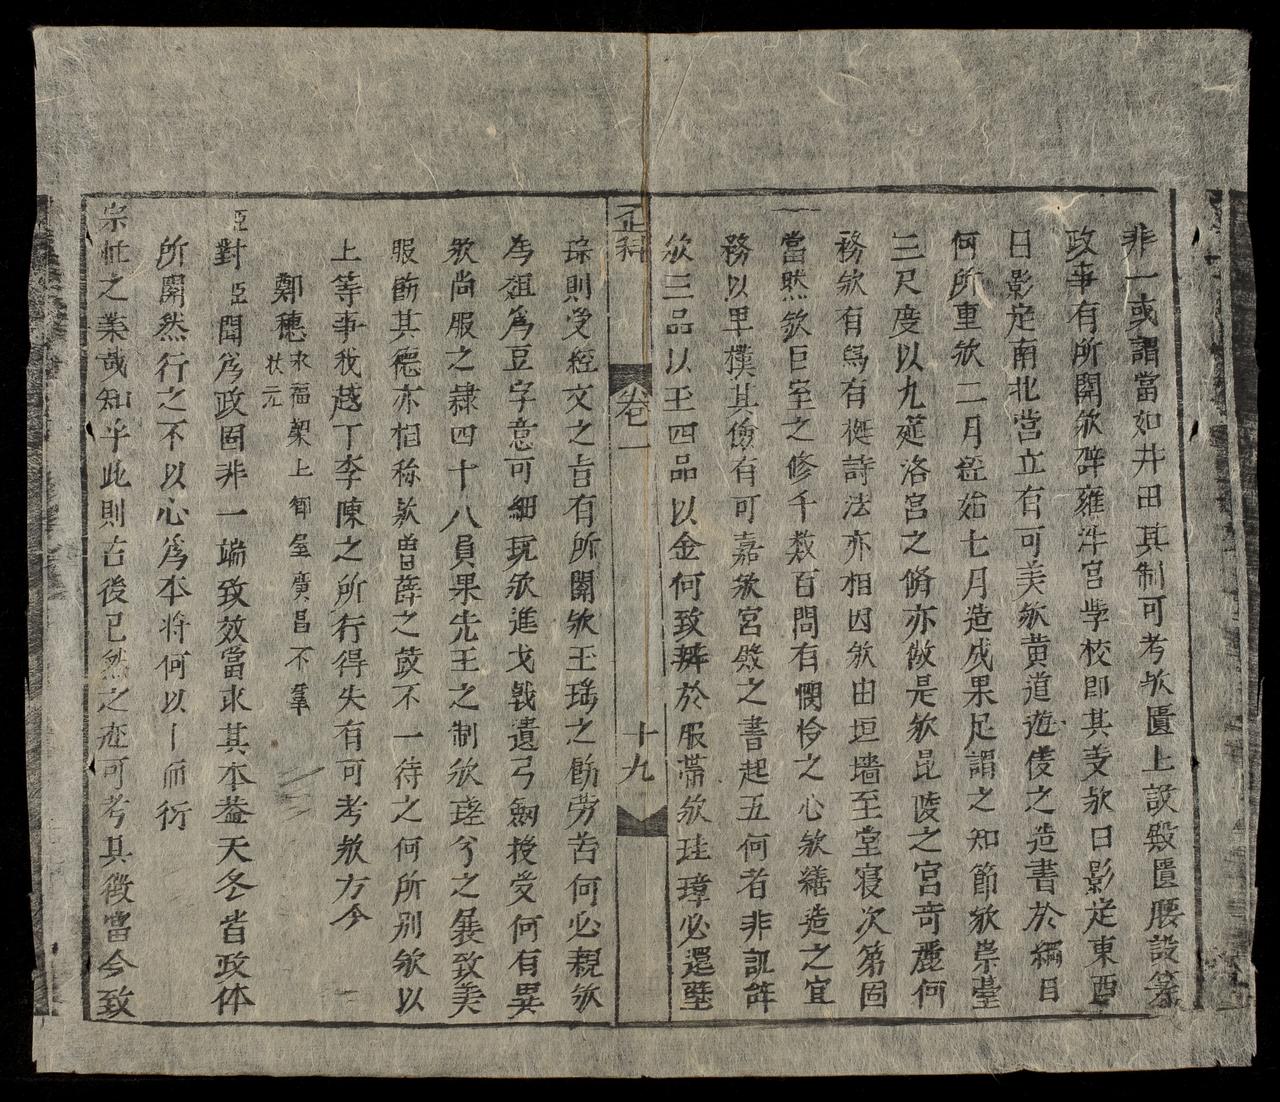 非一或謂當如井田其制可考欤匱上設殿匱腰設篆
政事有所關欤辟雍泮宮學校即其美欤日影定東西
日影定南北営立有可美欤黄道遊後之造書於綱目
何所重欤二月経始七月造成果足謂之知節欤崇臺
三尺度以九筵洛宮之脩亦倣是欤昆陵之宮奇麗何
務欤有寫有梃詩法亦相因欤由垣墻至堂寝次第固
當然欤曰室之修千数百問有憫怜之心欤繕造之宜
務以卑樸其儉有可嘉欤宮殿之書起五何者非訊辞
欤三品以玉四品以金何致辨於服带欤珪璋必還璧
正科 卷一 十九
琮則受経文之旨有所關欤玉瑤之飾劳苦何必親欤
為狙為豆字意可細玩欤進戈戟遺弓劍授受何有異
欤尚服之隷四十八員果先王之制欤瑳兮之展致美
服飾其德亦相称欤曽薛之蔽不一待之何所别欤以
上等事我越丁李陳之所行得失有可考欤方今
鄭穗 永福架上御屋廣昌不羣
状元
臣對臣聞為政固非一端致效當求其本葢天冬省政体
所關然行之不以心為本将何以丨而衍
宗社之業哉知乎此則古後已然之迹可考其徴當今致